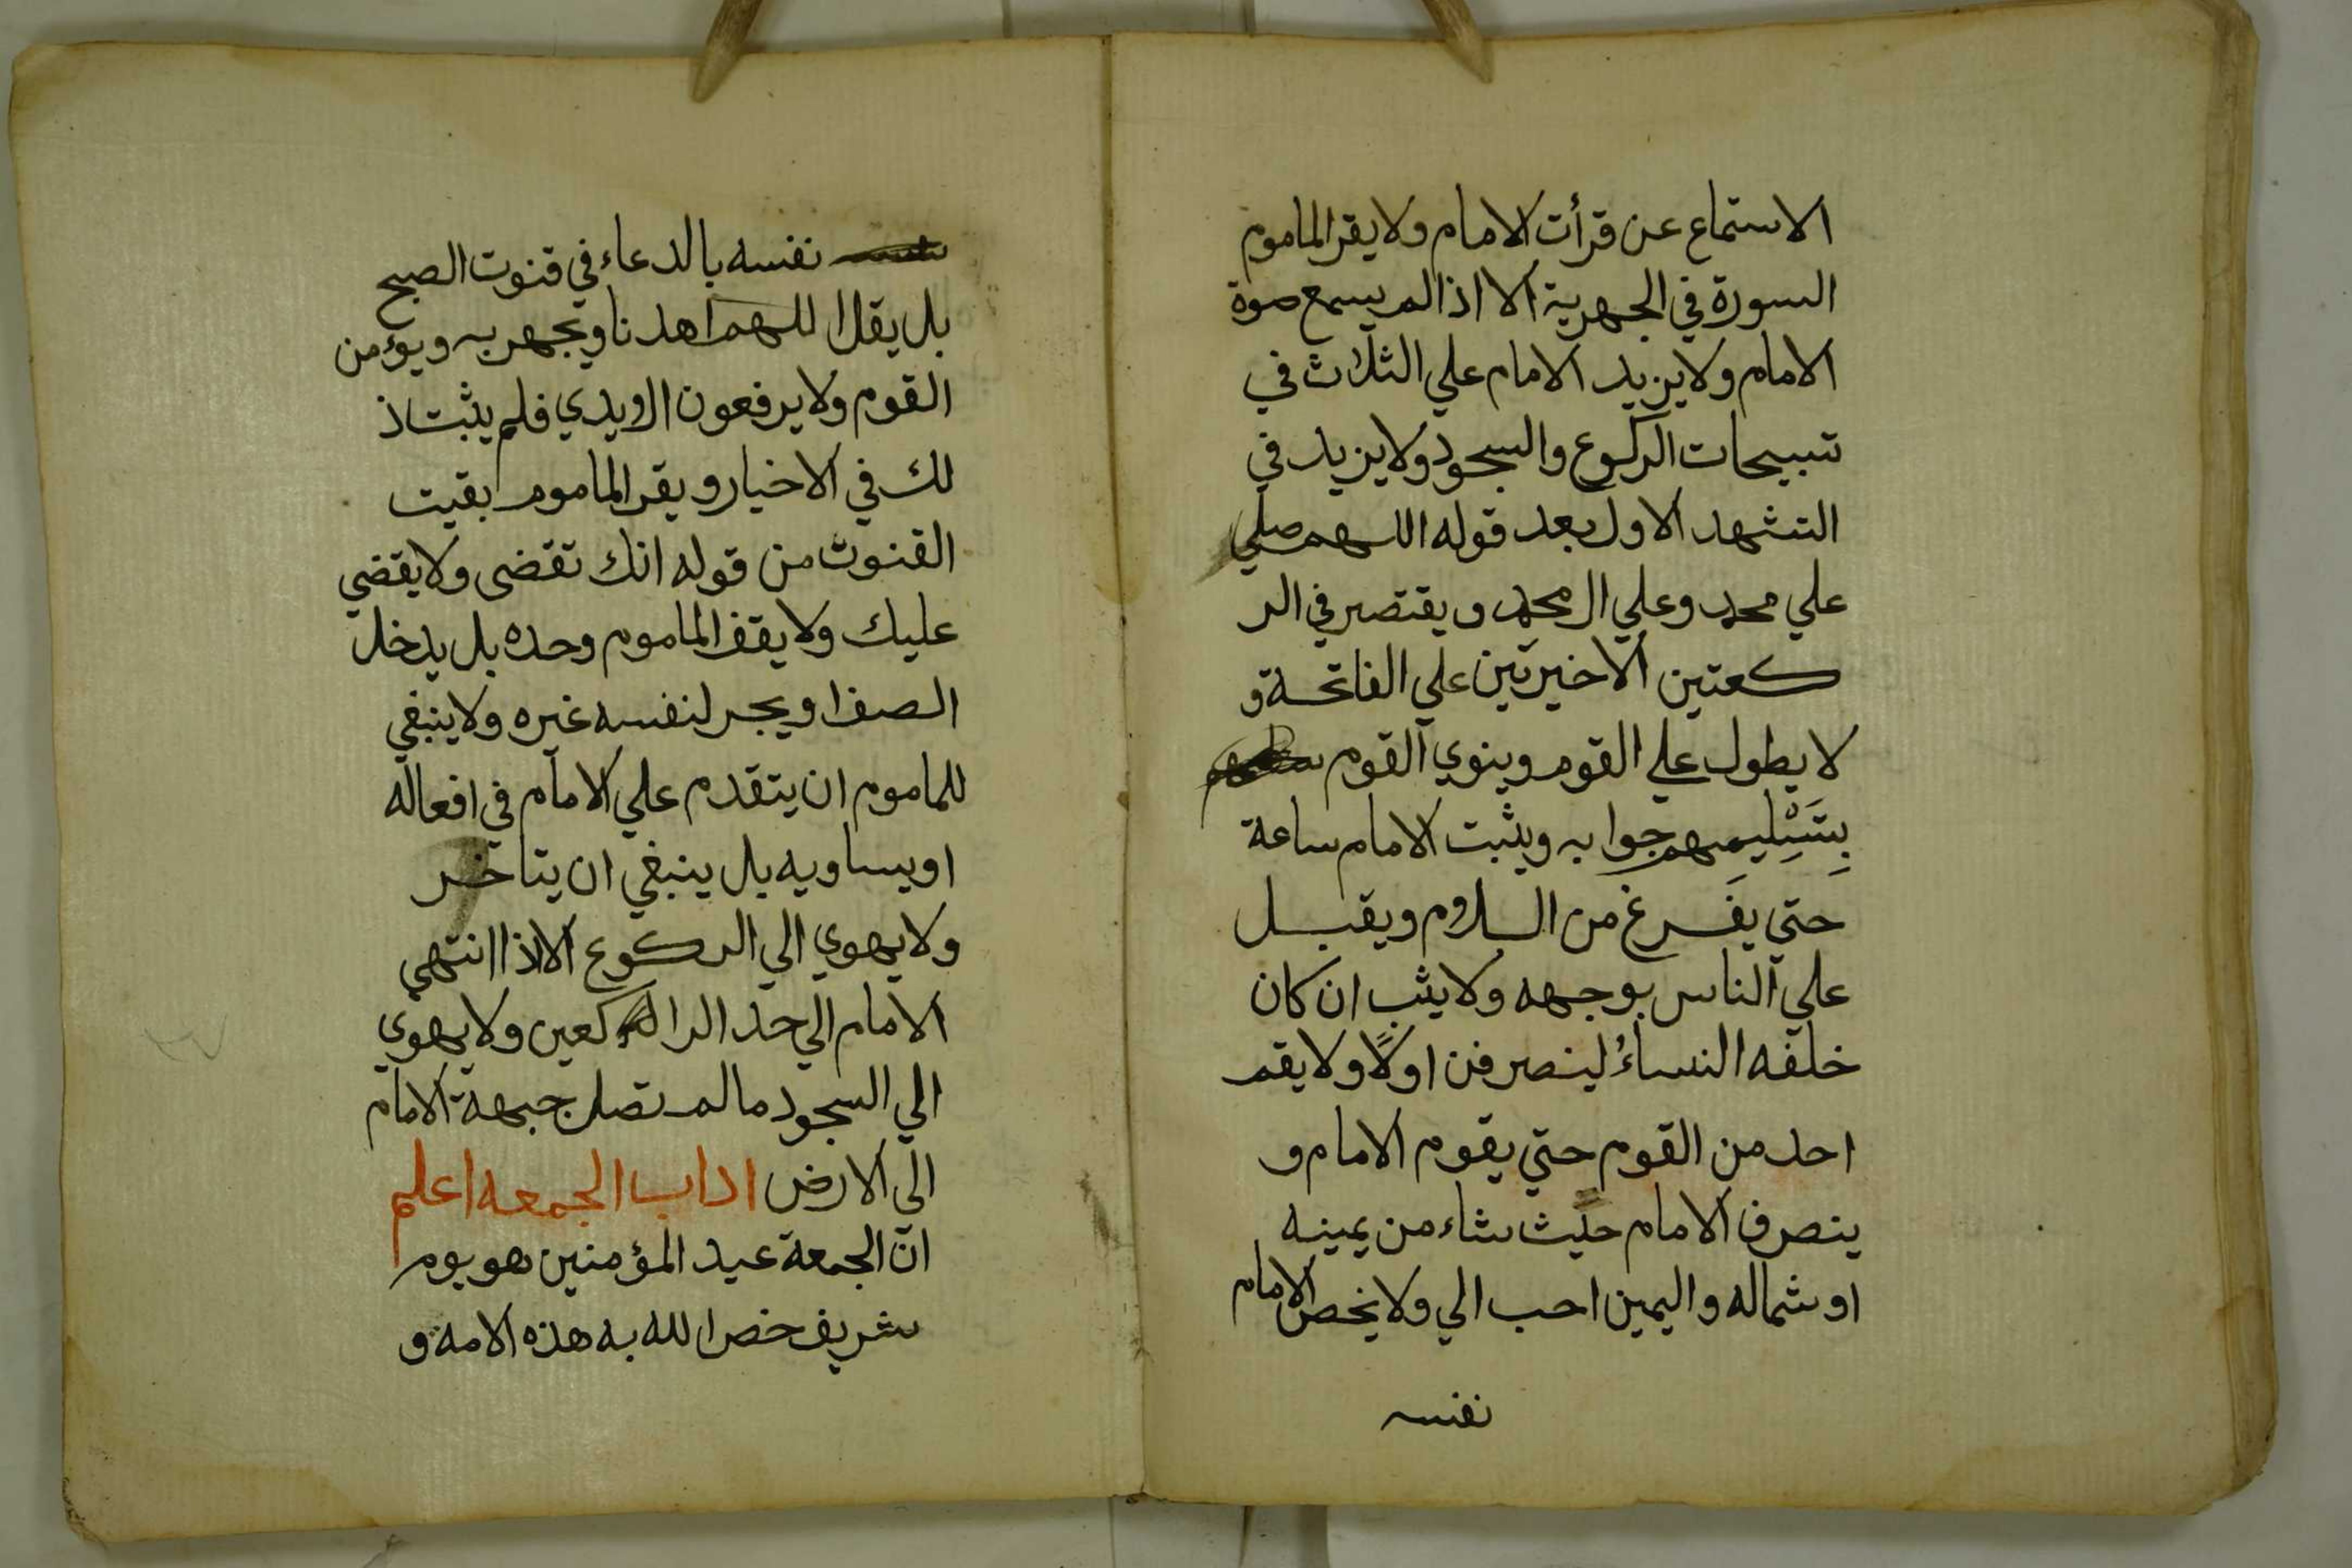 الاستماع عن قرأت الامام ولا يقر الماموم
السورة في الجهرية الا اذا لم يسمع صوة
الامام ولا يزيد الامام علي الثلاث في
تسبيحات الركوع والسجود ولا يزيد في
التشهد الاول بعد قوله اللهم صلي
علي محمد وعلي ال محمد ويقتصر في الر
كعتين الاخيرتين علي الفاتحة و
لا يطول علي القوم وينوي القوم
بِتَسْلِيمِهم جوابه ويثبت الامام ساعة
حتي يفَرغ من السلام ويقبل
علي الناس بوجهه ولا يثب ان كان
خلفه النساءُ لينصرفن اولًا ولا يقم
احد من القوم حتي يقوم الامام و
ينصرف الامام حيث شاء من يمينه
او شماله واليمين احب الي ولا يخص الامام
نفسه
نفسه بالدعاء في قنوت الصبح
بل يقل اللهم اهدنا ويجهر به ويؤمن
القوم ولا يرفعون الايدي فلم يثبت ذ
لك في الاخبار ويقر الماموم بقيت
القنوت من قوله انك تقضى ولا يقضي
عليك ولا يقف الماموم وحده بل يدخل
الصف او يجر لنفسه غيره ولا ينبغي
للماموم ان يتقدم علي الامام في افعاله
او يساويه بل ينبغي ان يتاخر
ولا يهوي الي الركوع الا اذا انتهي
الامام الي حد الراكعين ولا يهوي
الي السجود ما لم تصل جبهة الامام
الي الارض اداب الجمعه اعلم
انّ الجمعة عيد المؤمنين هو يوم
شريف خص الله به هذه الامه و